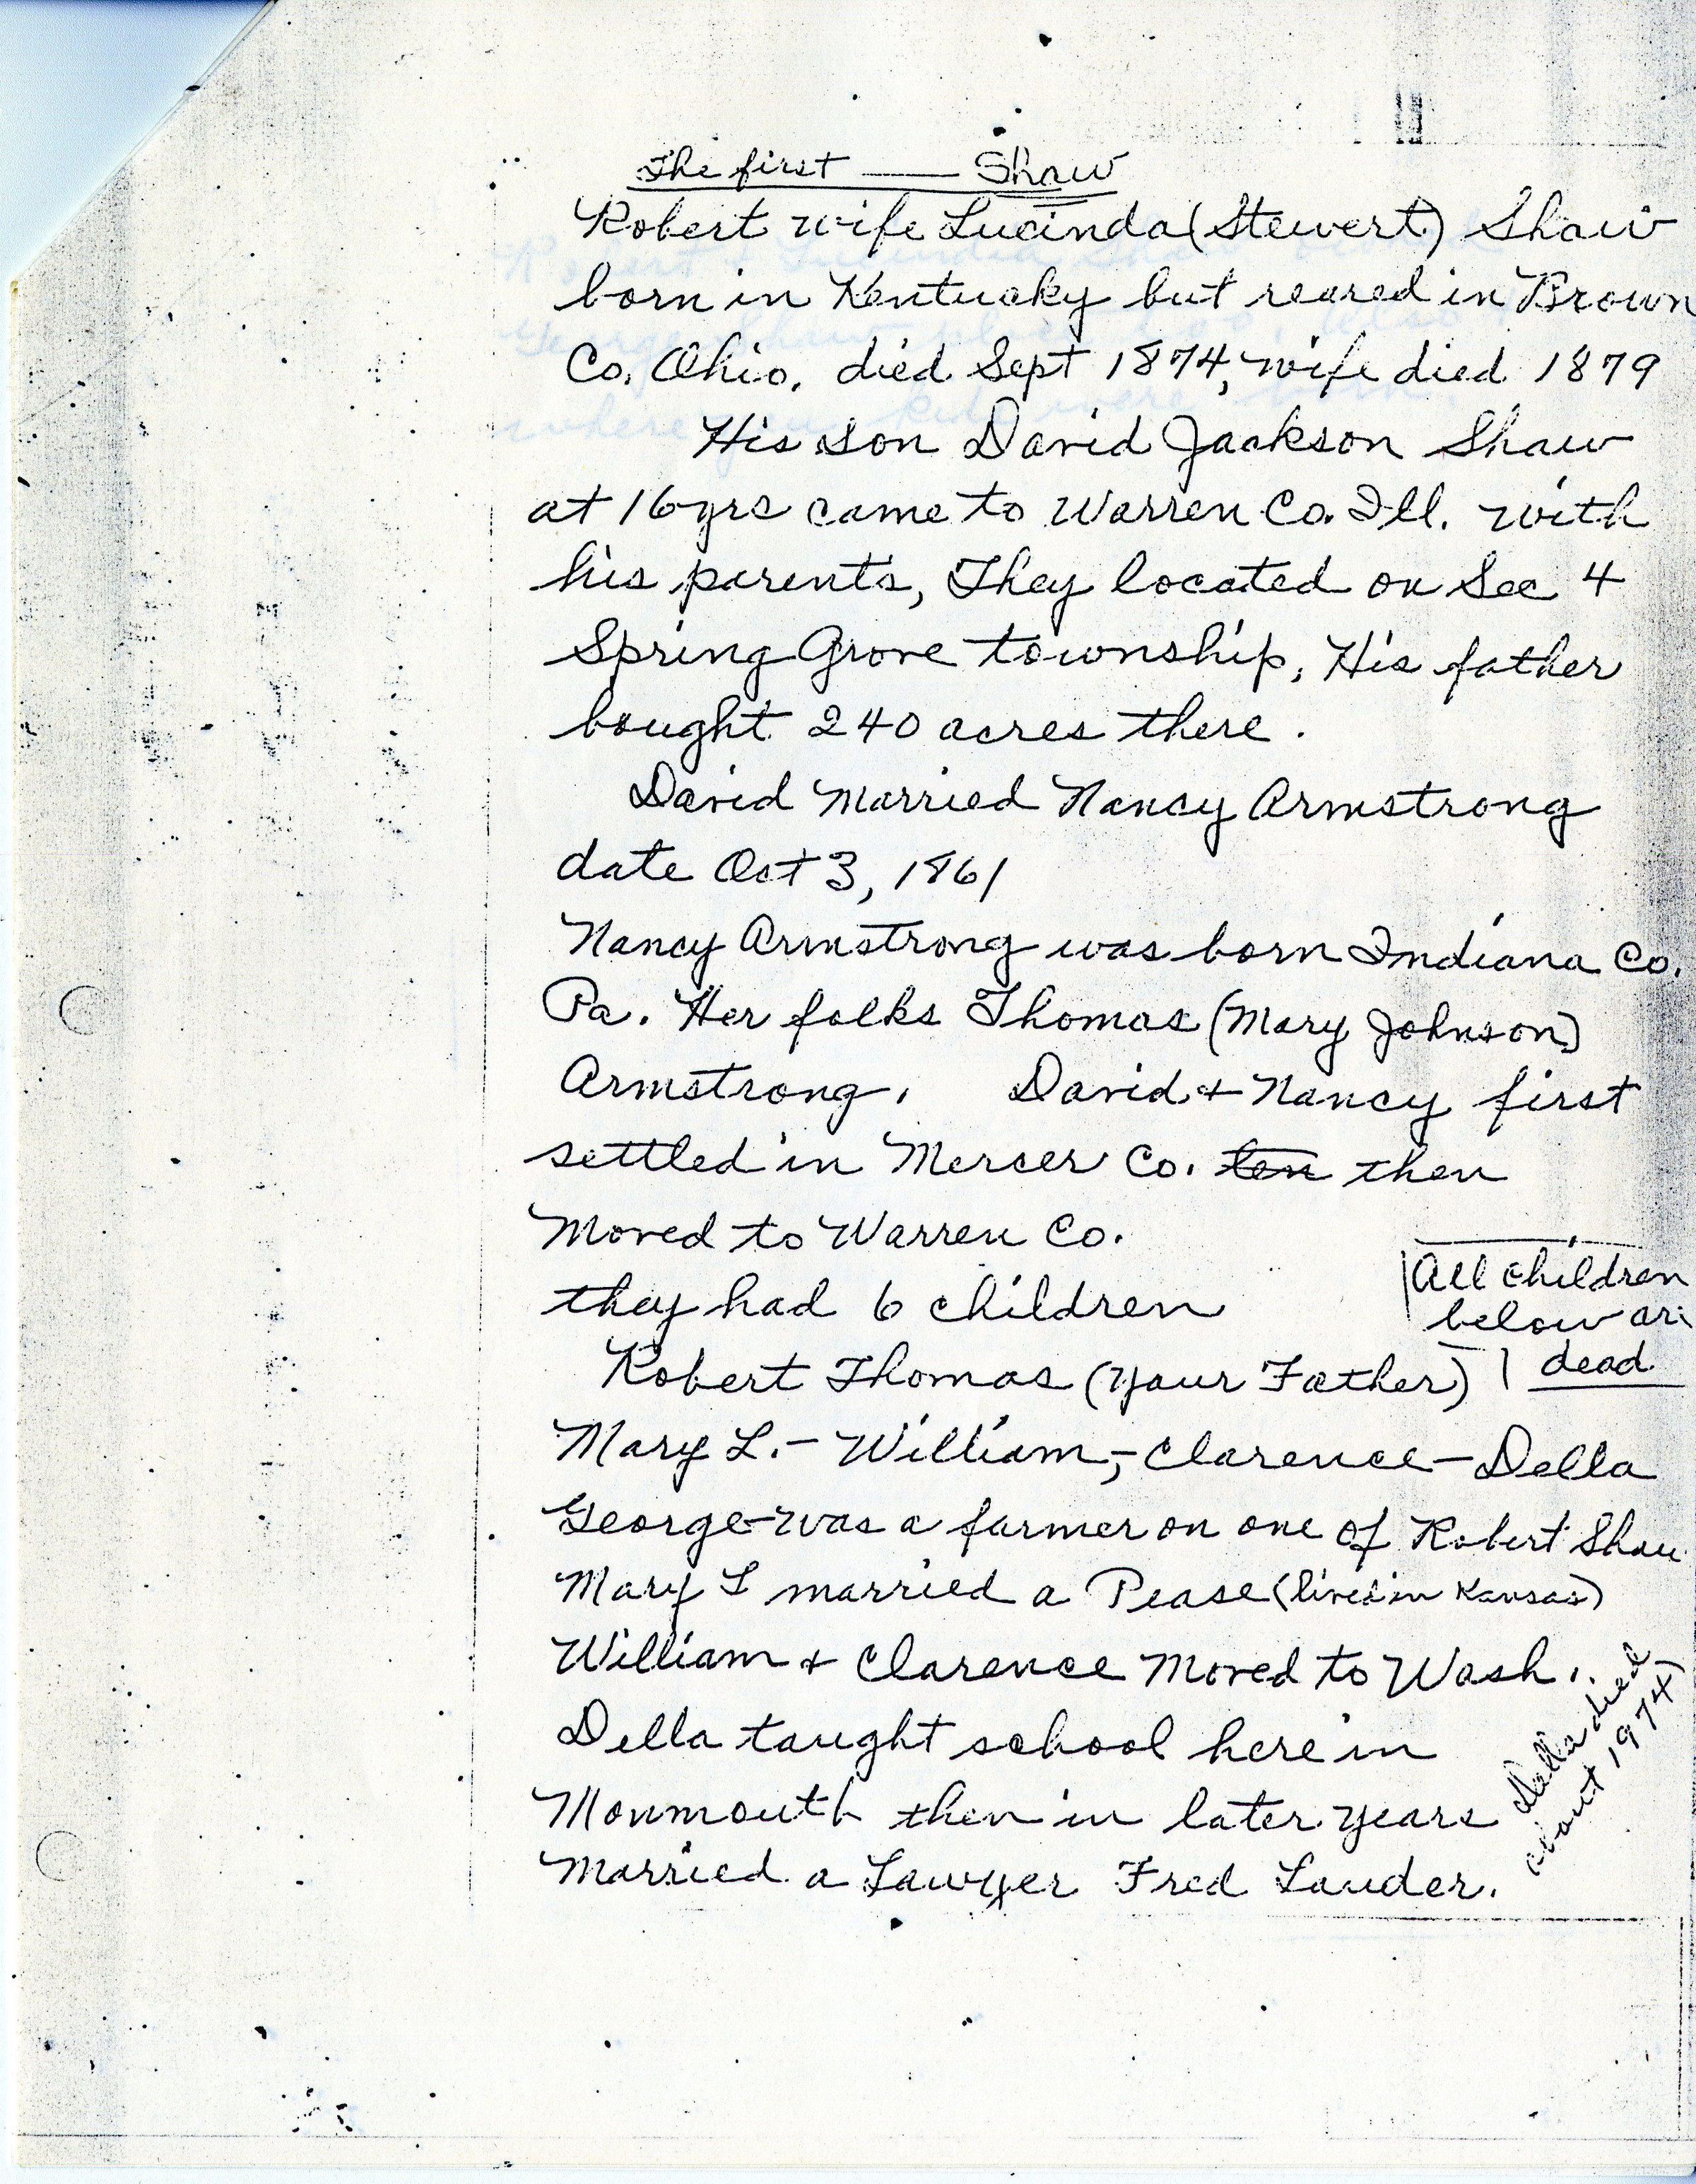 The first —— Shaw
Robert wife Lucinda (Stewert) Shaw
born in Kentucky but reared in Brown
Co. Ohio. died Sept 1874, wife died 1879
His son David Jackson Shaw
at 16 yrs came to Warren Co. Ill. with
his parents, They located on Sec 4
Spring Grove township. His father
bought 240 acres there.
David married Nancy Armstrong
date Oct 3, 1861
Nancy Armstrong was born Indiana Co.
Pa. Her folks Thomas (Mary Johnson)
Armstrong. David + Nancy first
settled in Mercer Co. ten then
moved to Warren Co.
they had 6 children
All children
below are
dead
Robert Thomas (your Father)
Mary L. - William, - Clarence - Della
George - was a farmer on one of Robert Shaw
Mary L married a Pease (lived in Kansas)
William + Clarence moved to Wash.
Della taught school here in
Monmouth then in later years
married a Lawyer Fred Lauder.
Della died
about 1974